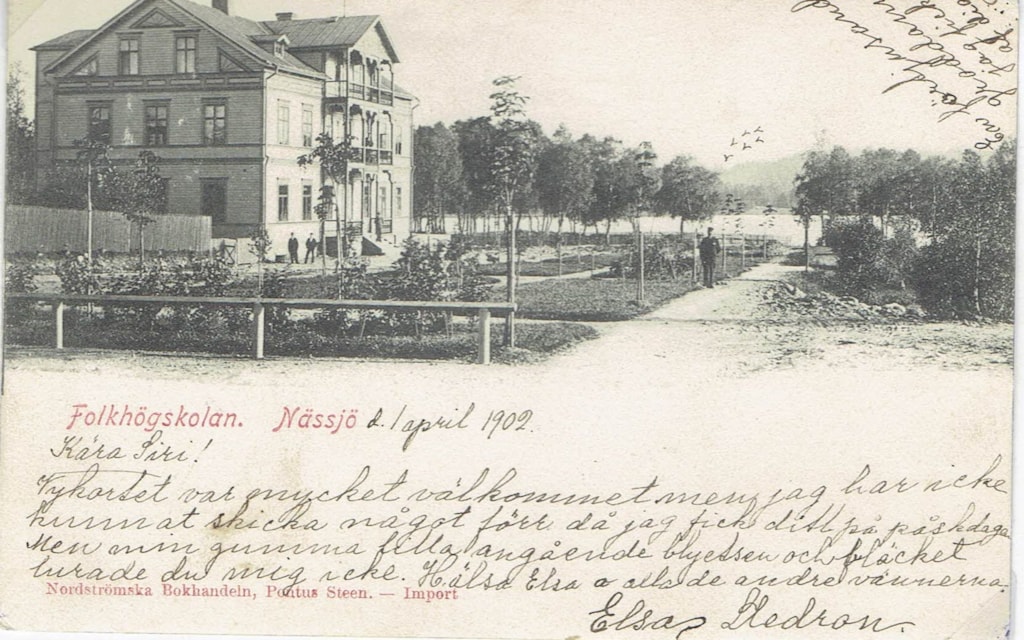 En
jag fick
Folkhögskolan. Nässjö d. 1 april 1902.
Kära Siri!
Vykortet var mycket välkommet men jag har icke
kunnat skicka något förr då jag fick ditt på påskdagen
Men min gumma lilla angående blyetsen och bläcket
lurade du mig icke. Hälsa Elsa o alla de andre vännerna.
Nordströmska Bokhandeln, Pontus Steen. — Import
Elsa Hedron.